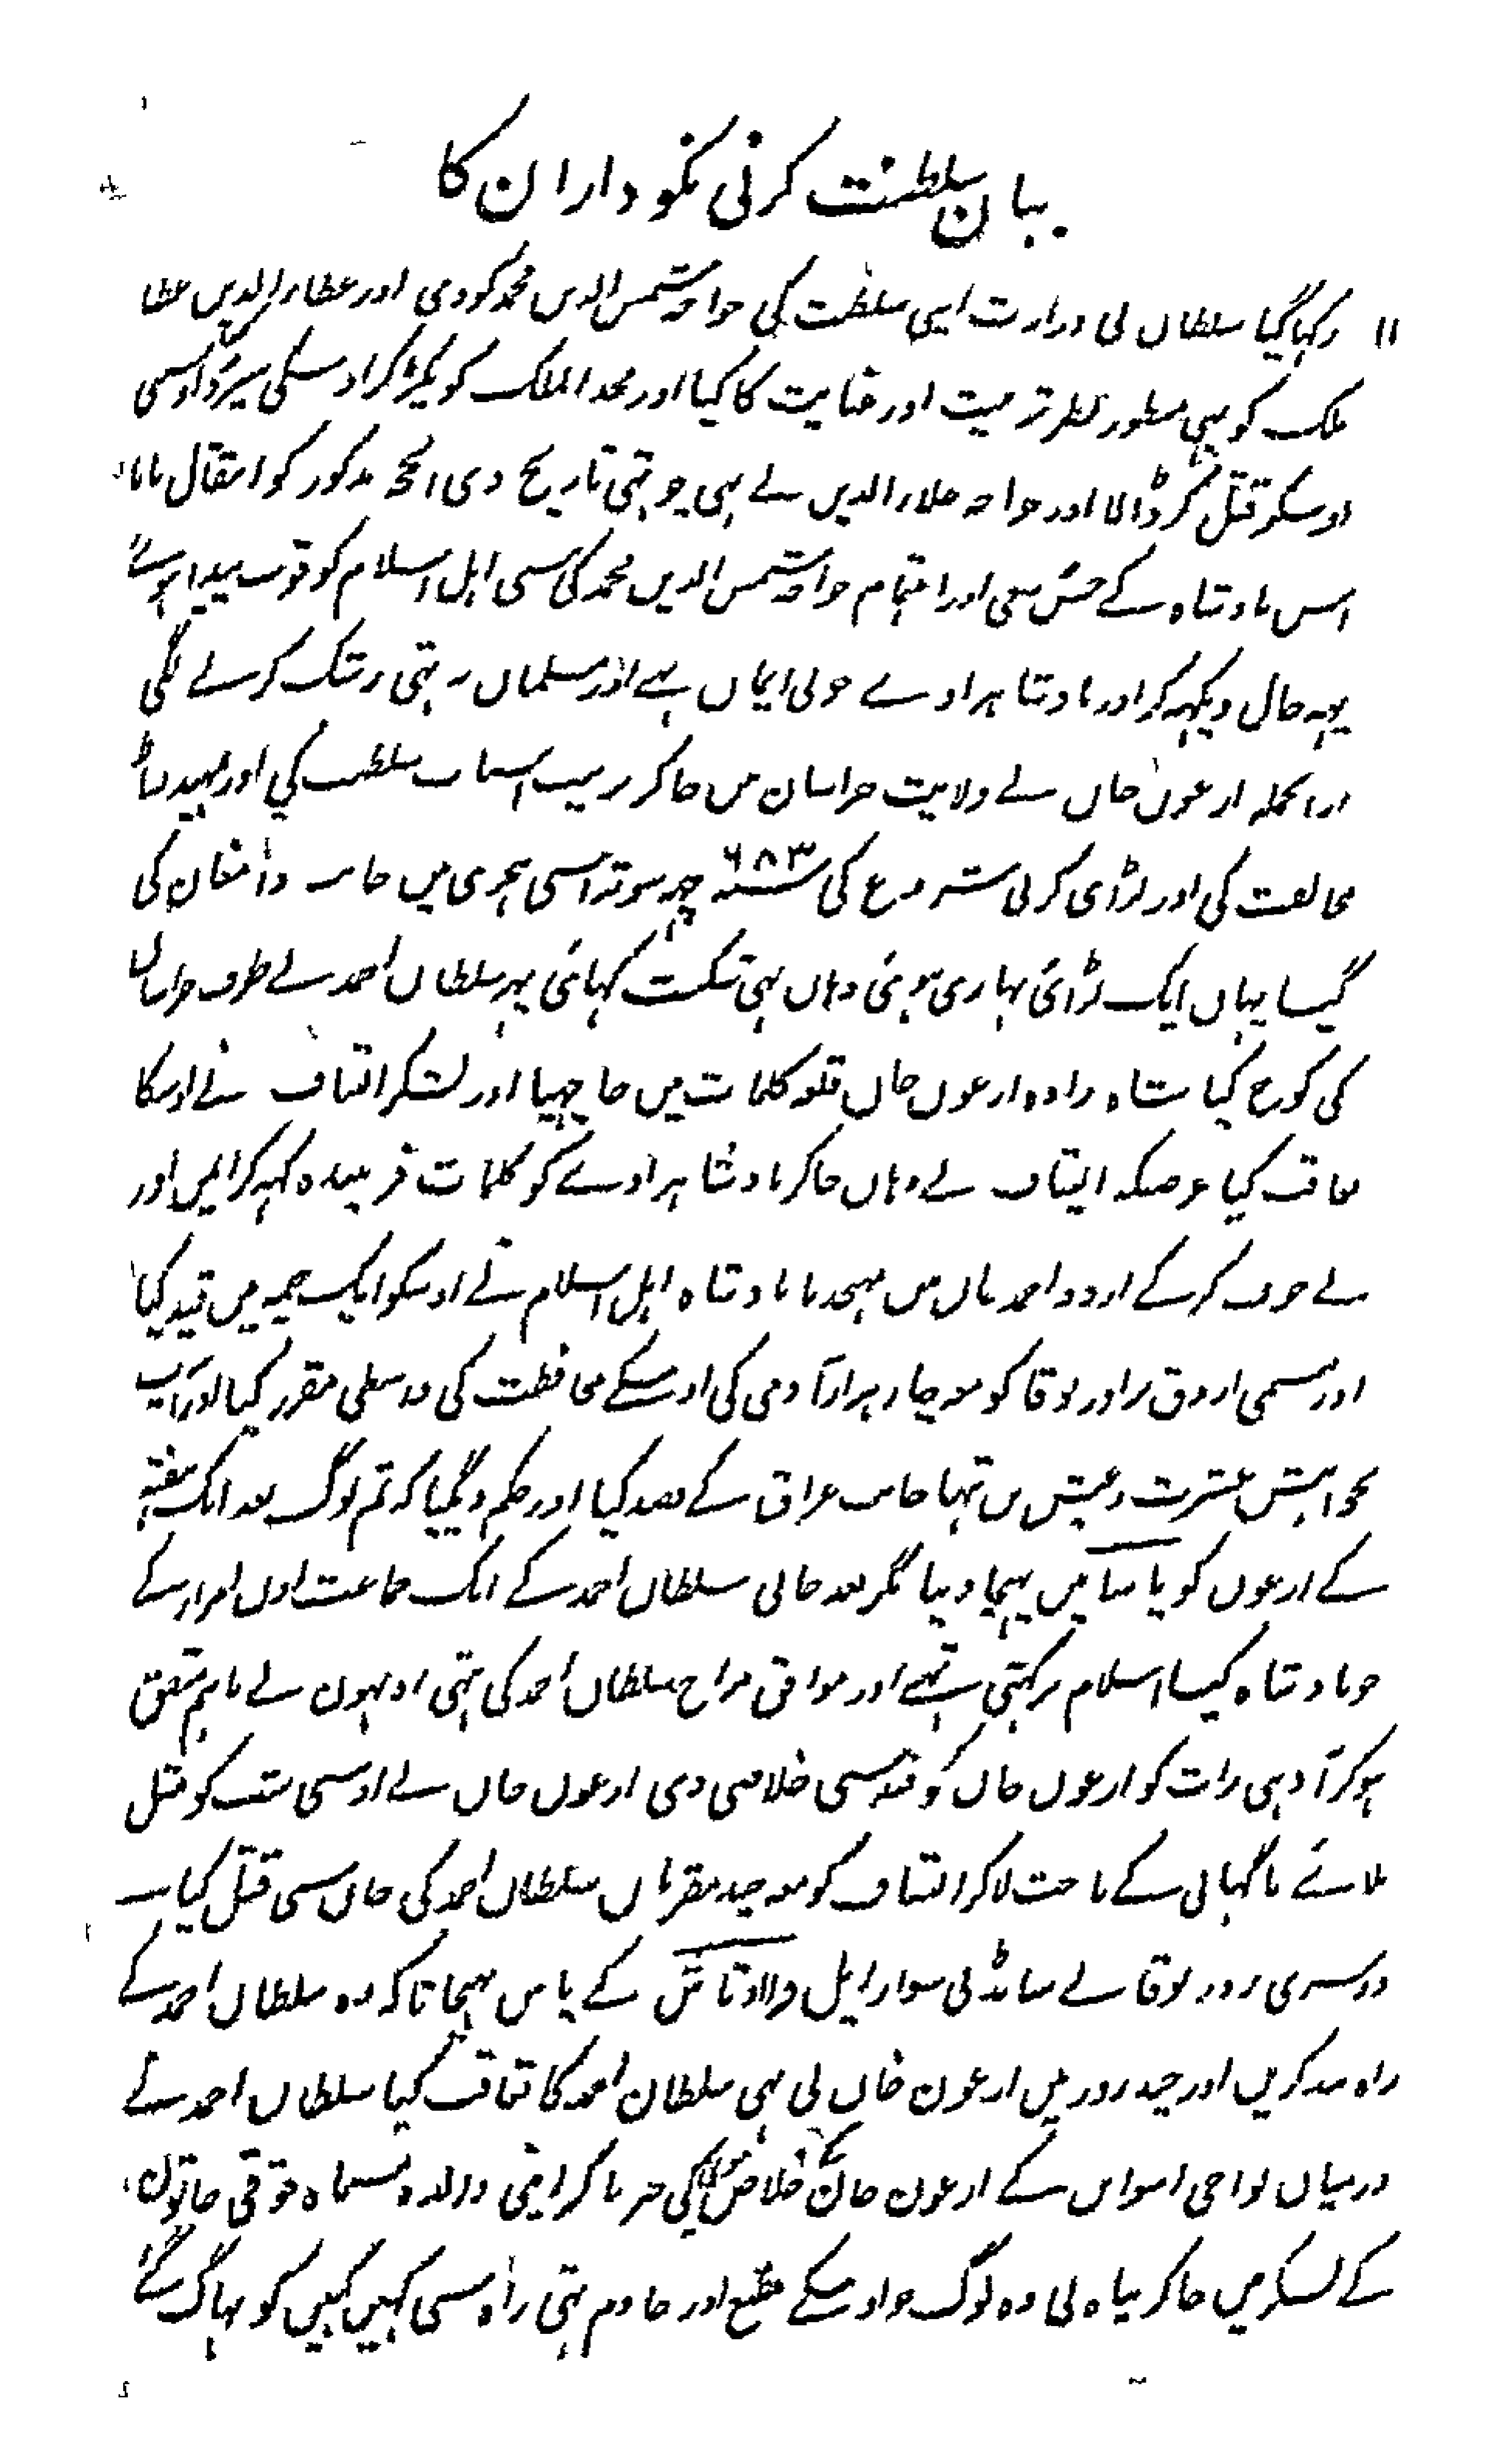 بیان سلطنت کرنی نکودار ان کا
رکہا گیا سلطان نی وزارت اپنی سلطنت کی خواجہ شمس الدین محمد کو دی اور عطاء الدین عطا
ملک کو بہی منظور نظر تربیت اور عنایت کا کیا اور مجد الملک کو پکڑ کر اوسکی سپرد اوسی
اوسکو قتل کر ڈالا اور خواجہ علاء الدین نے بہی چوتہی تاریخ ذی الحجہ مذکور کو انتقال پایا
اس بادشاہ کے حسن سعی اور اہتمام خواجہ شمس الدین محمد کی سی اہل اسلام کو قوت پیدا ہوئے
یہہ حال دیکہہ کر اور بادشاہزادے جو بی ایمان تہے اور مسلمان نہ تہی رشک کرنے لگی
ازانجملہ ارغون خان نے ولایت خراسان میں جاکر ترتیب اسباب سلطنت کی اور تمہید بنا
مخالفت کی اور لڑائی کرنی شروع کی سنہ ۶۸۳ چہہ سو تراسی ہجری میں جانب دامغان کی
گیا یہاں ایک لڑائی بہاری ہوئی وہاں بہی شکست کہائی پہر سلطان احمد نے طرف خراسان
کی کوچ کیا شاہ زادہ ارغون خان قلعہ کلات میں جا چہپا اور لشکر الیناق نے اوسکا
تعاقب کیا غرضکہ الیناق نے وہاں جاکر بادشاہزادے کو کلمات فریبندہ کہہ کر ایمن اور
بے خوف کر کے اردو احمد خان میں بہیجدیا بادشاہ اہل اسلام نے اوسکو ایک خیمہ میں قید کیا
اور مسمی اروق برادر بوقا کو معہ چار ہزار آدمی کی اوسکے محافظت کی واسطی مقرر کیا اور آپ
بخواہش عشرت و عیش تنہا جانب عراق کے قصد کیا اور حکم دیگیا کہ تم لوگ بعد ایک ہفتہ
کے ارغون کو یاسا میں پہنچا دینا مگر بعد جانی سلطان احمد کے ایک جماعت اول امراء کے
جو بادشاہ کیسا اسلام نرکہتی تہے اور موافق مزاج سلطان احمد کی تہی اونہون نے باہم متفق
ہوکر آدہی رات کو ارغون خان کو قید سی خلاصی دی ارغون خان نے اوسی شب کو مثل
بلائے ناگہانی کے تاخت لاکر الیناق کو معہ چند مقربان سلطان احمد کی جان سی قتل کیا
دوسری روز بوقا نے سانڈنی سوار ایل کے پاس بہیجا تاکہ وہ سلطان احمد کے
راہ بند کریں اور چند روز میں ارغون خان نی بہی سلطان احمد کا تعاقب کیا سلطان احمد نے
درمیان نواحی اسواس کے ارغون خان کے خلاص کی خبر پاکر اپنی والدہ مسماہ قوتی خاتون
کے لشکر میں جاکر پناہ لی وہ لوگ جو اوسکے مطیع اور خادم تہی راہ سی کہیں کہیں کو بہاگ گئے